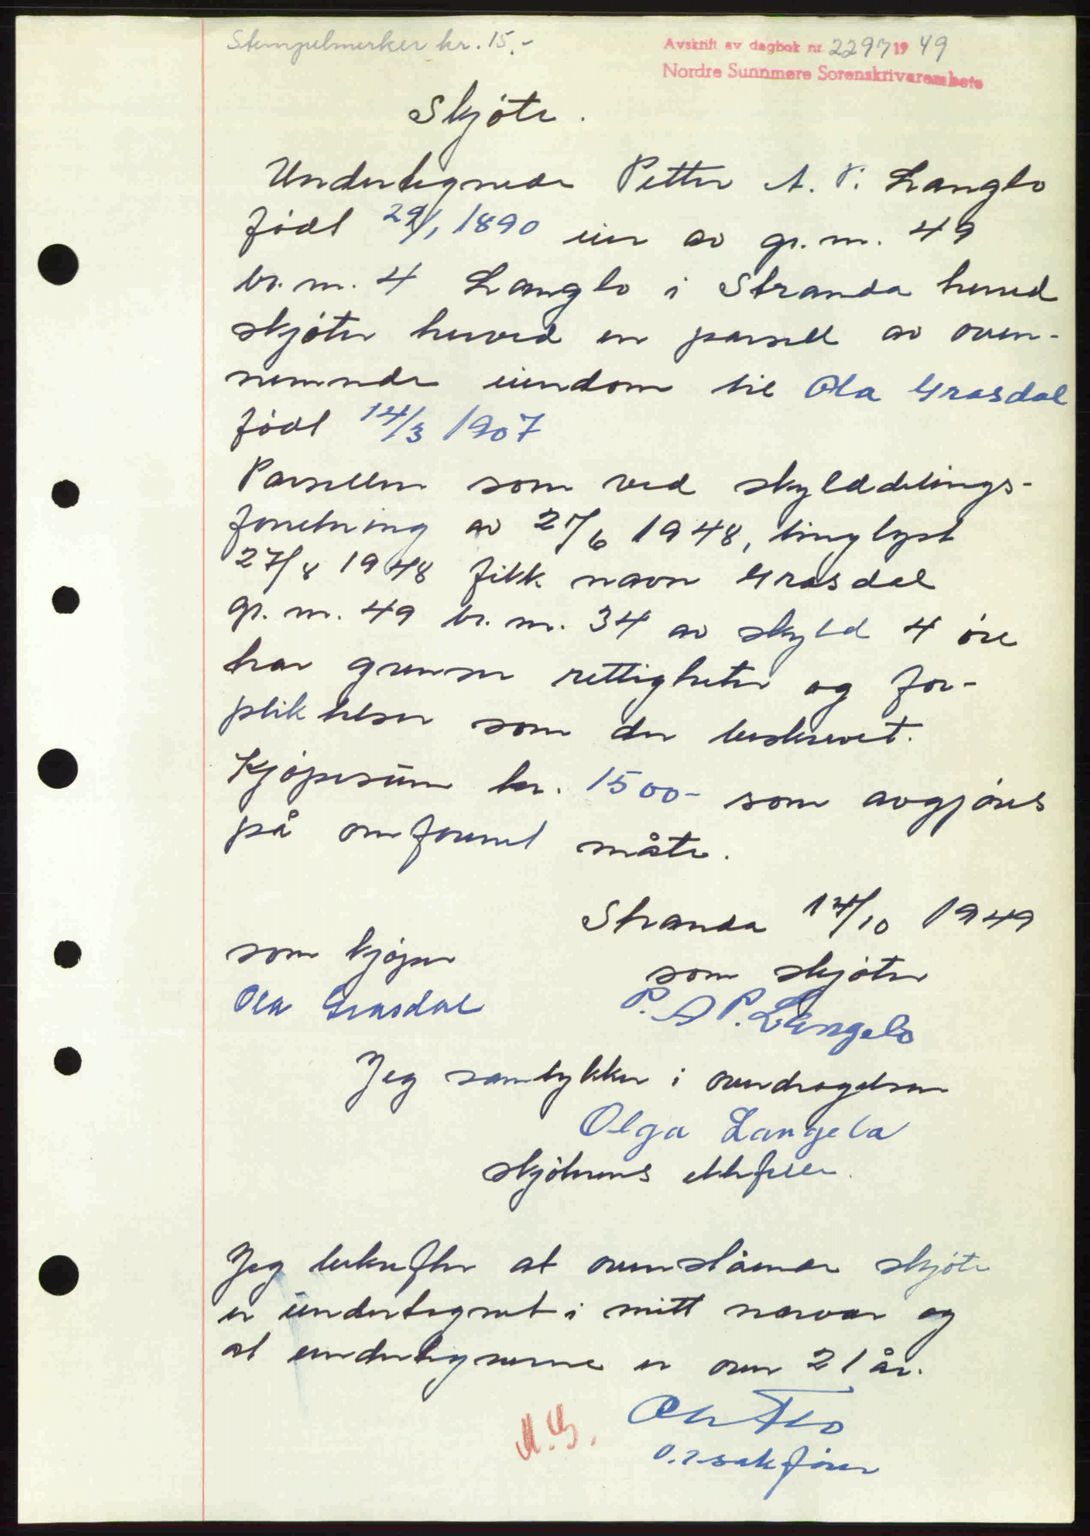 Stempelmerker kr. 15.-
Avskrift av dagbok nr. 2297 19 49
Nordre Sunnmøre Sorenskrivarembete
Skjøte.
Undertegnede Petter A. P. Langlo
født 29/1 1890 eier av gr. nr. 49
br. nr. 4 Langlo i Stranda herred
skjøter herved en parsell av oven-
nemnde eiendom til Ola Grasdal
født 14/3 1907
Parsellen som ved skylddelings-
forretning av 27/6 1948, tinglyst
27/8 1948 fikk navn Grasdal
gr. nr. 49 br. nr. 34 av skyld 4 øre
har grenser rettigheter og for-
pliktelser som der beskrevet.
Kjøpesum kr. 1500- som avgjøres
på omforenet måte.
Stranda 14/10 1949
som kjøper
som skjøter
Ola Grasdal
P. A P. Langelo
Jeg samtykker i overdragelsen
Olga Langelo
skjøterens ektefelle.
Jeg bekrefter at ovenstående skjøte
er undertegnet i mitt nærvær og
at undertegnerne er over 21 år.
Flo
o.r.sakfører